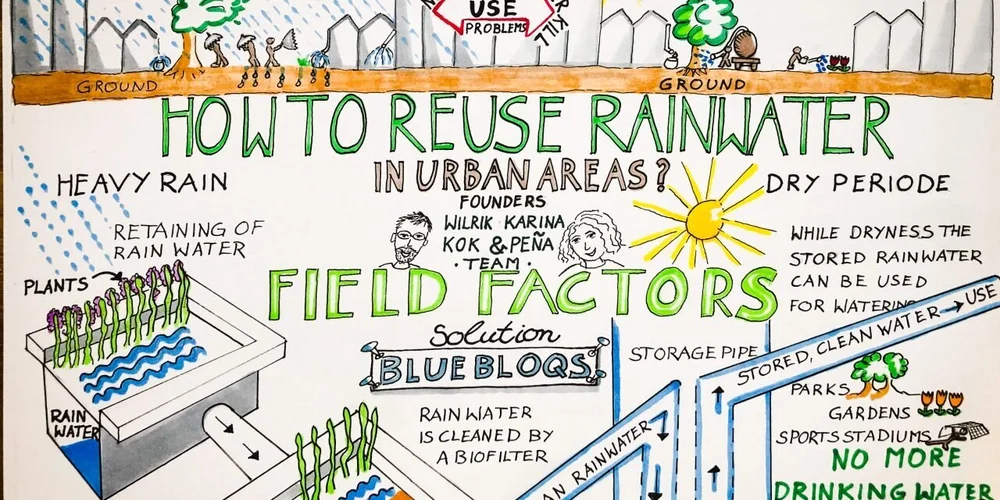 USE
PROBLEMS
GROUND
GROUND
HOW TO REUSE RAINWATER
IN URBAN AREAS?
HEAVY RAIN
DRY PERIODE
FOUNDERS
WILRIK KARINA
KOK & PEÑA
·TEAM·
FIELD FACTORS
RETAINING OF
RAIN WATER
PLANTS
WHILE DRYNESS THE
STORED RAINWATER
CAN BE USED
FOR WATERING
Solution
BLUEBLOQS
STORAGE PIPE
STORED, CLEAN WATER → USE
RAIN
WATER
RAINWATER
IS CLEANED BY
A BIOFILTER
RAINWATER
PARKS
GARDENS
SPORTS STADIUMS
NO MORE
DRINKING WATER